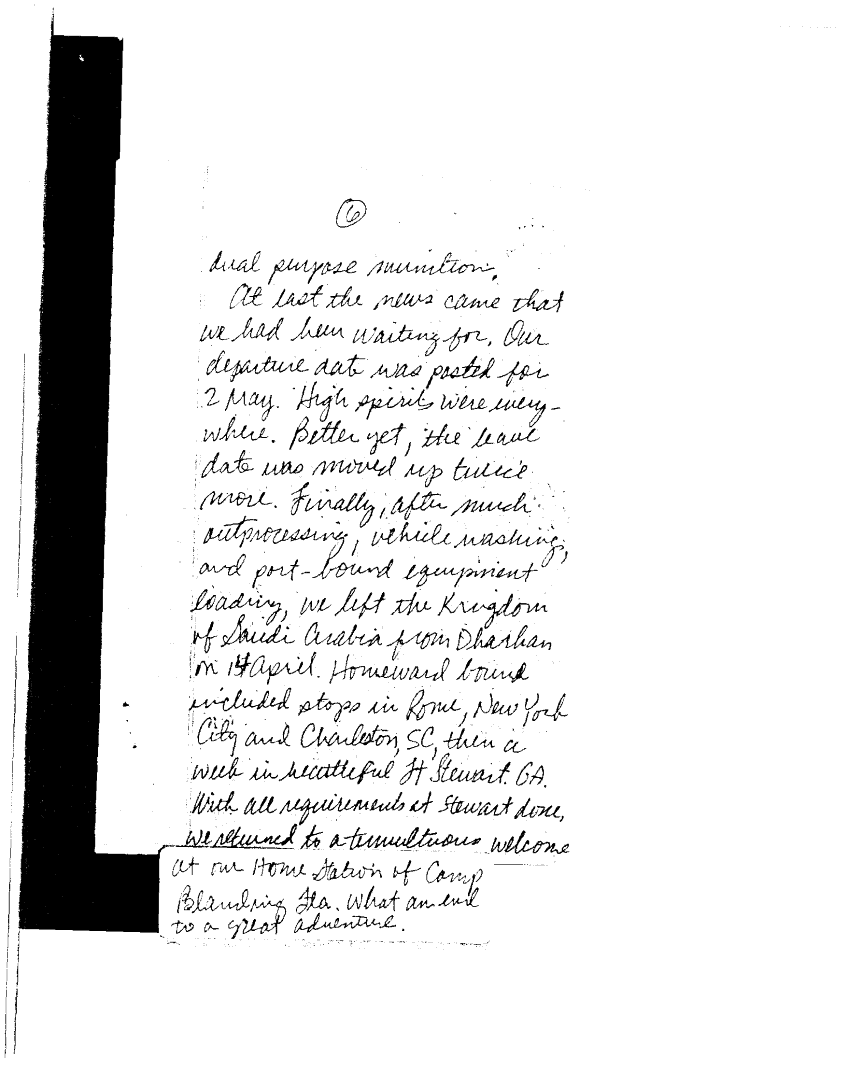 6
dual purpose munition.
At last the news came that
we had been waiting for. Our
departure date was posted for
2 May. High spirits were every-
where. Better yet, the leave
date was moved up twice
more. Finally, after much
outprocessing, vehicle washing,
and port-bound equipment
loading, we left the Kingdom
of Saudi Arabia from Dharhan
on April. Homeward bound
included stops in Rome, New York
City and Charleston, SC, then a
week in beautiful Ft Stewart. GA.
With all requirements at Stewart done,
we returned to a tumultuous welcome
at our Home Station of Camp
Blanding Fla. What an end
to a great adventure.